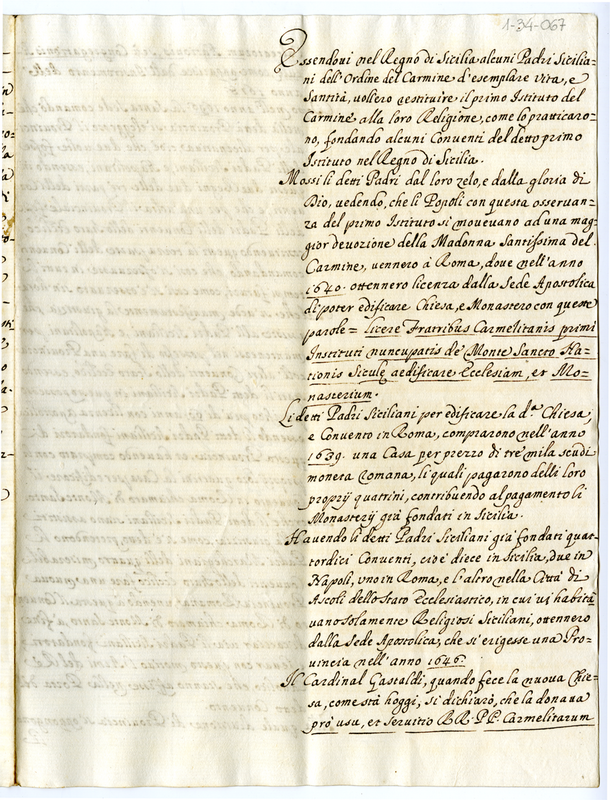 1-34-067
Essendovi nel Regno di Sicilia alcuni Padri Sicilia=
ni dell'Ordine del Carmine d'esemplare vita, e
Santità, volsero restituire il primo Istituto del
Carmine alla loro Religione, come lo pratticaro=
no, fondando alcuni Conventi del detto primo
Istituto nel Regno di Sicilia.
Mossi li detti Padri dal loro zelo, e dalla gloria di
Dio, vedendo, che li Popoli con questa osservan=
za del primo Istituto si moveuano ad una mag=
gior devozione della Madonna Santissima del
Carmine, vennero à Roma, dove nell'anno
1640. ottennero licenza dalla Sede Apostolica
di poter edificare Chiesa, e Monastero con queste
parole= licere Fratribus Carmelitanis primi
Instituti nuncupatis de' Monte Sancto Na=
tionis Siculę aedificare Ecclesiam, et Mo=
nasterium.
Li detti Padri Siciliani per edificare la d.ª Chiesa,
e Convento in Roma, comprarono nell'anno
1639. una Casa per prezzo di tre mila scudi
moneta Romana, li quali pagarono delli loro
proprij quattrini, contribuendo al pagamento li
Monasterij già fondati in Sicilia.
Havendo li detti Padri Siciliani già fondati quat=
tordici Conventi, cioè diece in Sicilia, due in
Napoli, uno in Roma, e l'altro nella Città di
Ascoli dello Stato Ecclesiastico, in cui vi habita
vano solamente Religiosi Siciliani, ottennero
dalla Sede Apostolica, che si erigesse una Pro=
uincia nell'anno 1646.
Il Cardinal Gastaldi, quando fece la nuova Chie=
sa, come stà hoggi, si dichiarò, che la donava
prò usu, et servitio RR. PP. Carmelitarum